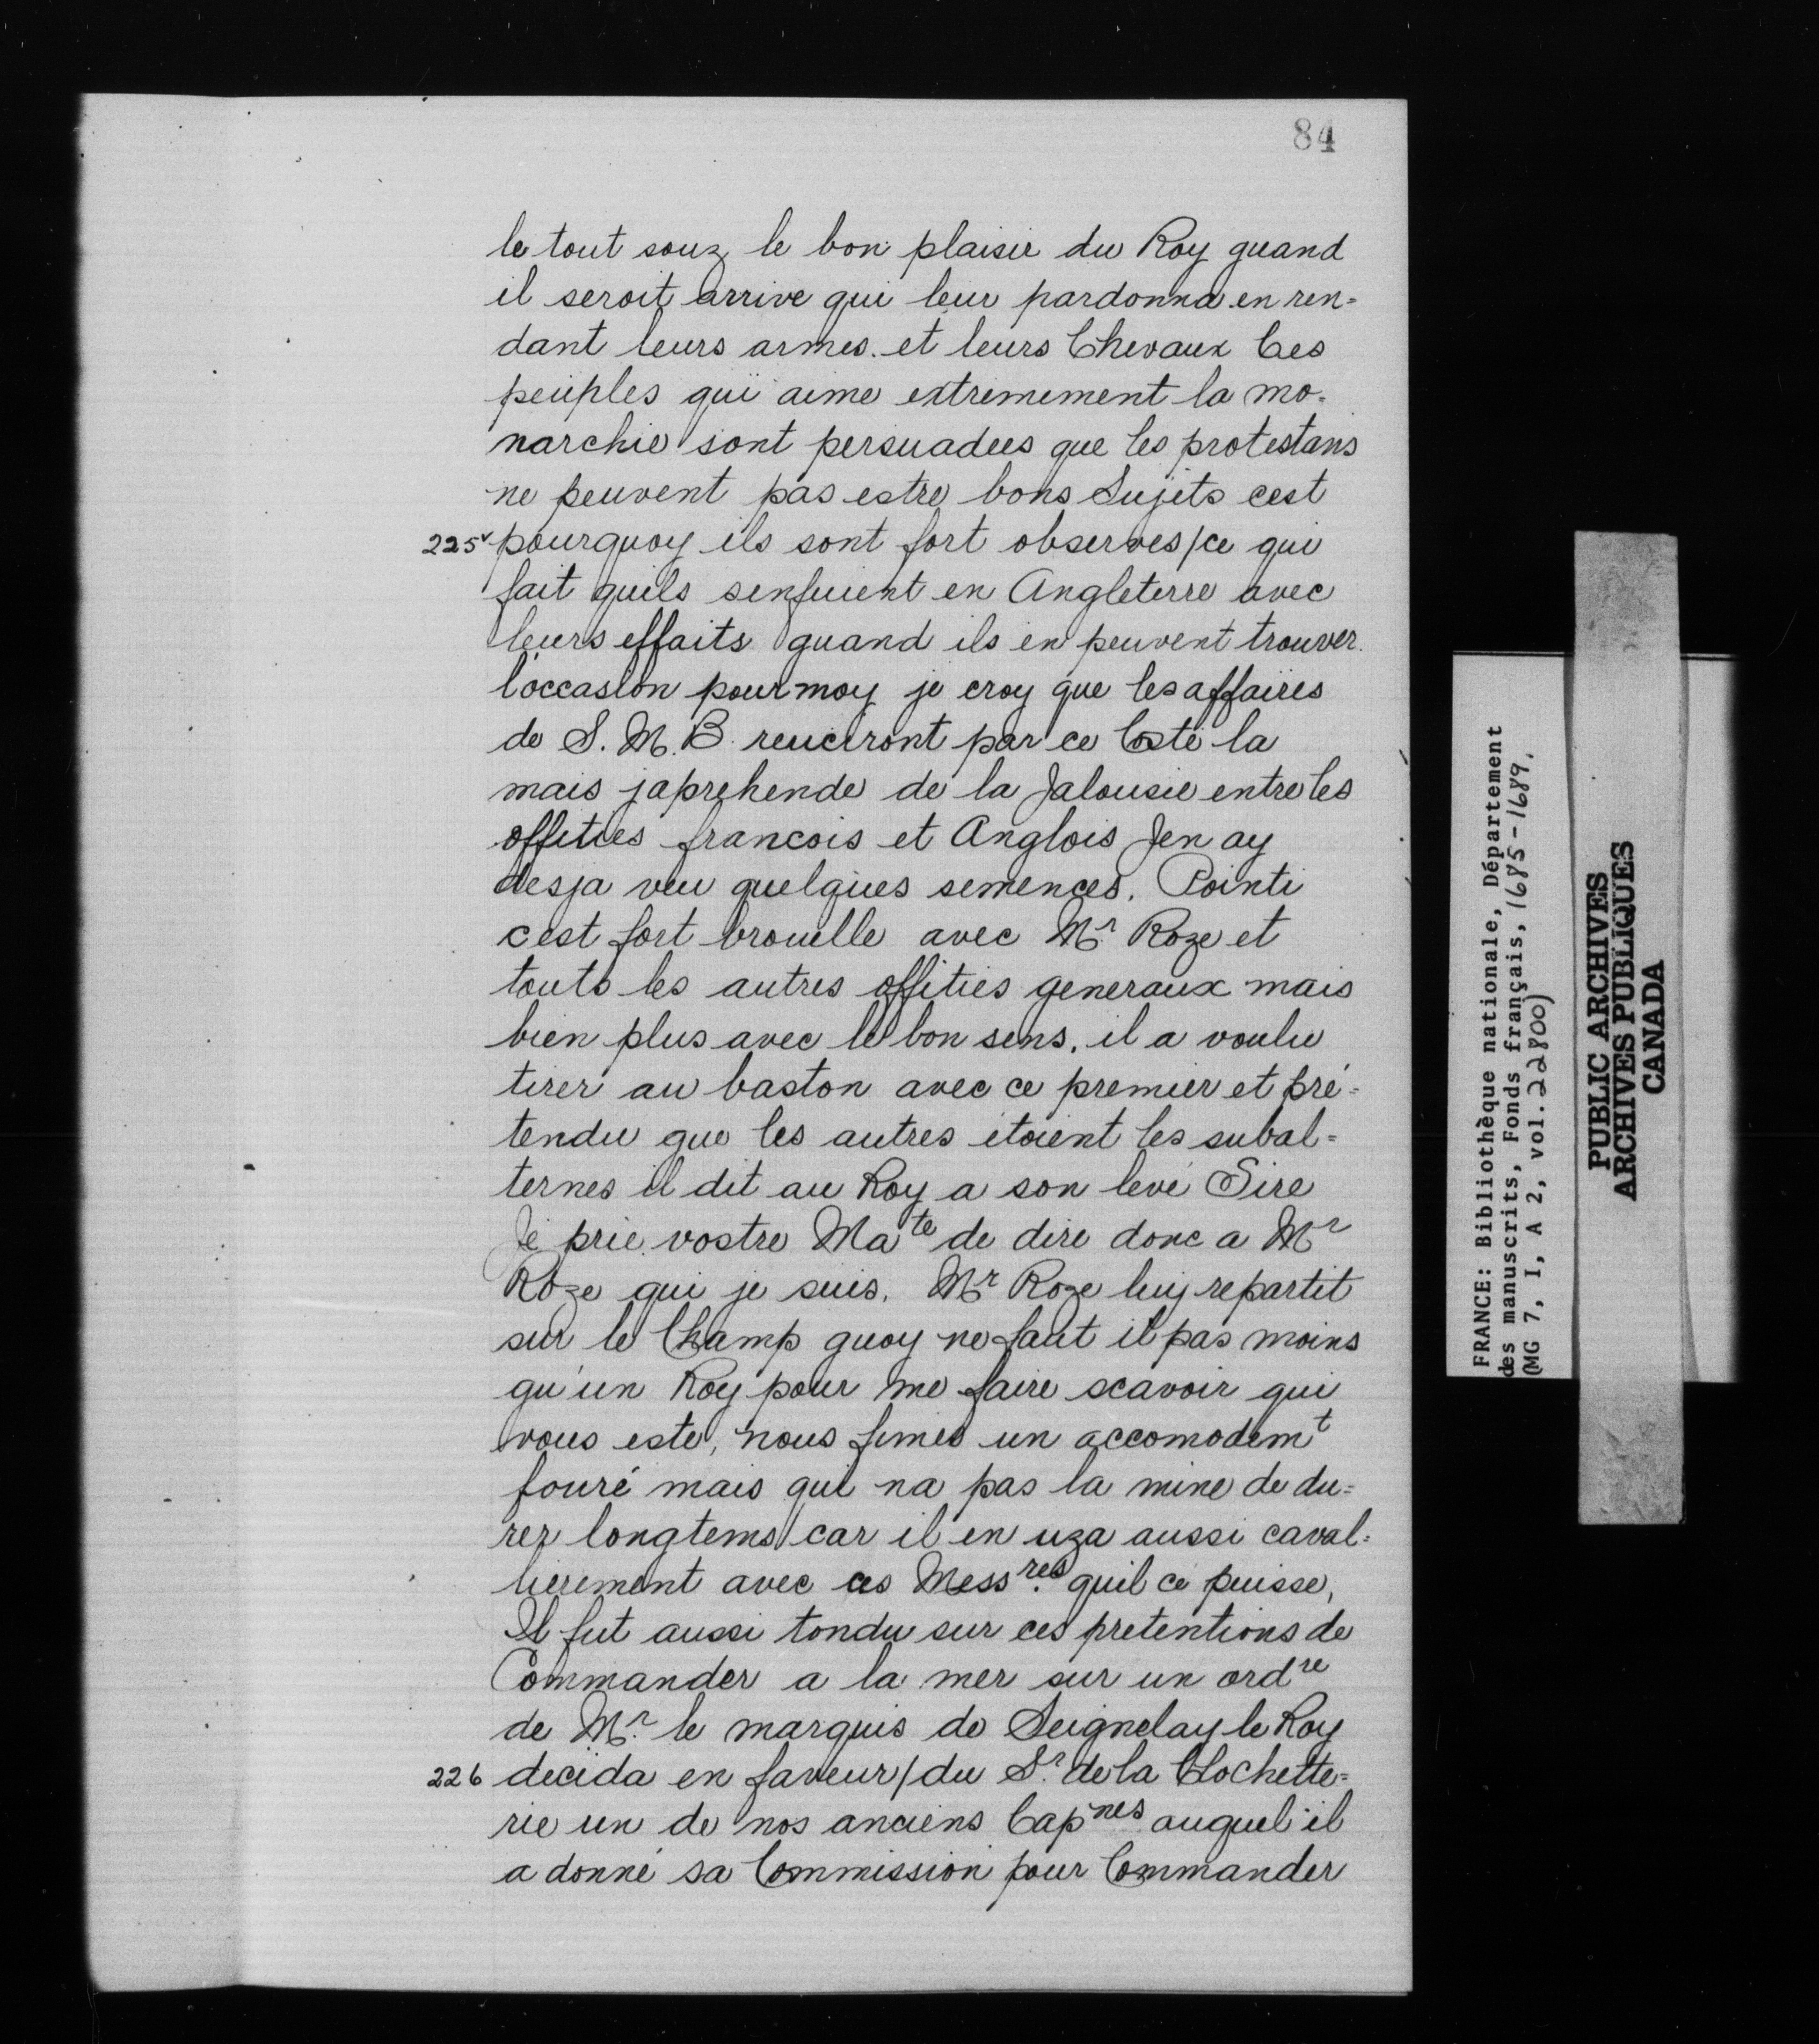 84
le tout souz le bon plaisir du Roy quand
il seroit arrive qui leur pardonna en ren=
dant leurs armes. et leurs Chevaux Ces
peuples qui aime extremement la mo=
narchie sont persuadees que les protestans
ne peuvent pas estre bons Sujets cest
225v pourquoy ils sont fort observes/ce qui
fait quils senfuient en Angleterre avec
leurs effaits quand ils en peuvent trouver
l'occasion pour moy je croy que les affaires
de S. M. B. reuciront par ce Costé la
mais japrehende de la Jalousie entre les
offities francois et Anglois Jen ay
desja veu quelques semences. Pointi
c'est fort brouelle avec Mr. Roze et
touts les autres offities generaux mais
bien plus avec le bon sens. il a voulu
tirer au baston avec ce premier et pré=
tendu que les autres étoient les subal=
ternes il dit au Roy a son levé Sire
Je prie vostre Mate de dire donc a Mr
Roze qui je suis. Mr Roze luy repartit
sur le Champ quoy ne faut il pas moins
qu'un Roy pour me faire scavoir qui
vous este, nous fimes un accomodemt
fouré mais qui na pas la mine de du=
rer longtems car il en uza aussi caval=
lierement avec ces Messres. quil ce puisse,
Il fut aussi tondu sur ces pretentions de
Commander a la mer sur un ordre
de Mr. le marquis de Seignelay le Roy
226 decida en faveur/du Sr. de la Clochette=
rie un de nos anciens Capnes auquel il
a donné sa Commission pour Commander
FRANCE: Bibliothèque nationale, Département
des manuscrits, Fonds français, 1685-1689.
(MG 7, I, A 2, vol. 22800)
PUBLIC ARCHIVES
ARCHIVES PUBLIQUES
CANADA